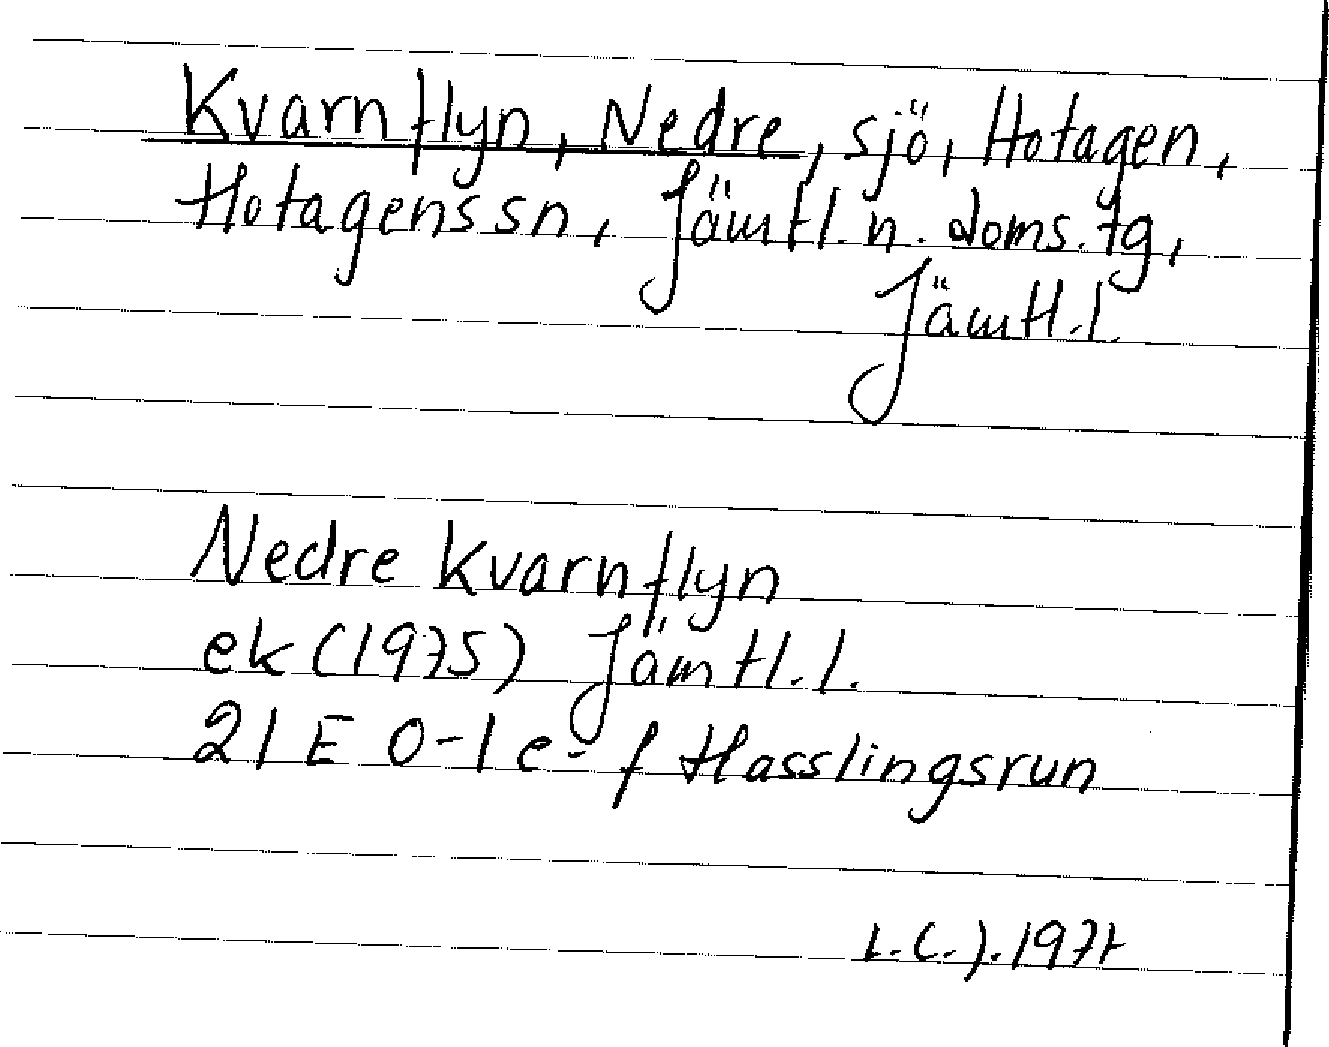 Kvarnflyn, Nedre, sjö, Hotagen,
Hotagens sn, Jämtl. n. doms. tg,
Jämtl. l.
Nedre Kvarnflyn
ek (1975) Jämtl. l.
21 E 0-1 e-f Hasslingsrun